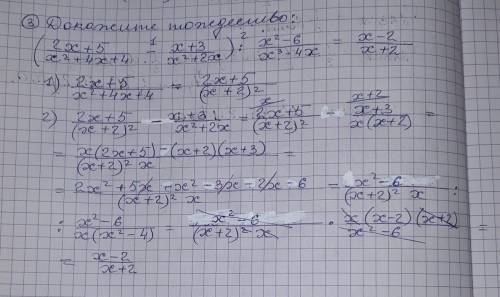 ③ Докажите тождество:
((2x+5)/(x²+4x+4) -¹ (x+3)/(x²+2x)) :² (x²-6)/(x³-4x) = (x-2)/(x+2)
1) (2x+5)/(x²+4x+4) = (2x+5)/(x+2)²
2) (2x+5)/(x+2)² - (x+3)/(x²+2x) = ˣ(2x+5)/(x+2)² - ˣ⁺²(x+3)/(x(x+2)) =
= (x(2x+5)-(x+2)(x+3))/((x+2)² x) =
= (2x²+5x-x²-3x-2x-6)/((x+2)² x) = (x²-6)/((x+2)² x) :
: (x²-6)/(x(x²-4)) = (x²-6)/((x+2)² x) · (x(x-2)(x+2))/(x²-6) =
= (x-2)/(x+2)